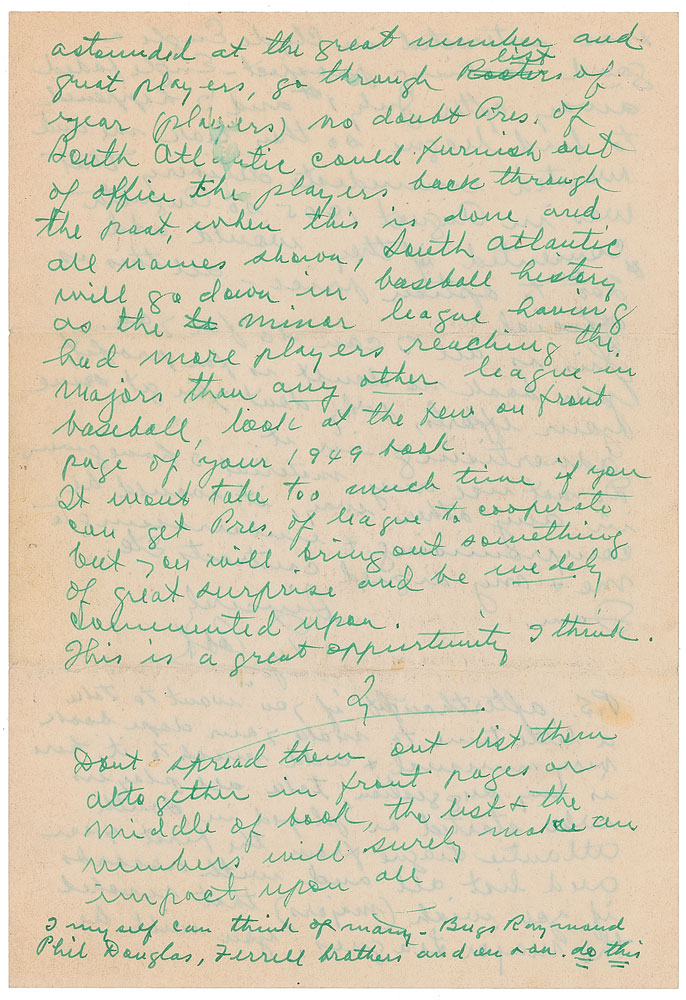 astounded at the great number and
great players, go through Rosters list of
year (players) no doubt Pres. of
South Atlantic could furnish out
of office the players back through
the past, when this is done and
all names shown, South Atlantic
will go down in baseball history
as the minor league having
had more players reaching the
majors than any other league in
baseball, look at the few on front
page of your 1949 book.
It wont take too much time if you
can get Pres. of league to cooperate
but you will bring out something
of great surprise and be widely
commented upon.
This is a great oppurtunity I think.
Ty
Dont spread them out list them
altogether in front pages or
middle of book, the list + the
numbers will surely make an
impact upon all
I myself can think of many - Bugs Raymond
Phil Douglas, Ferrell brothers and on + on. do this